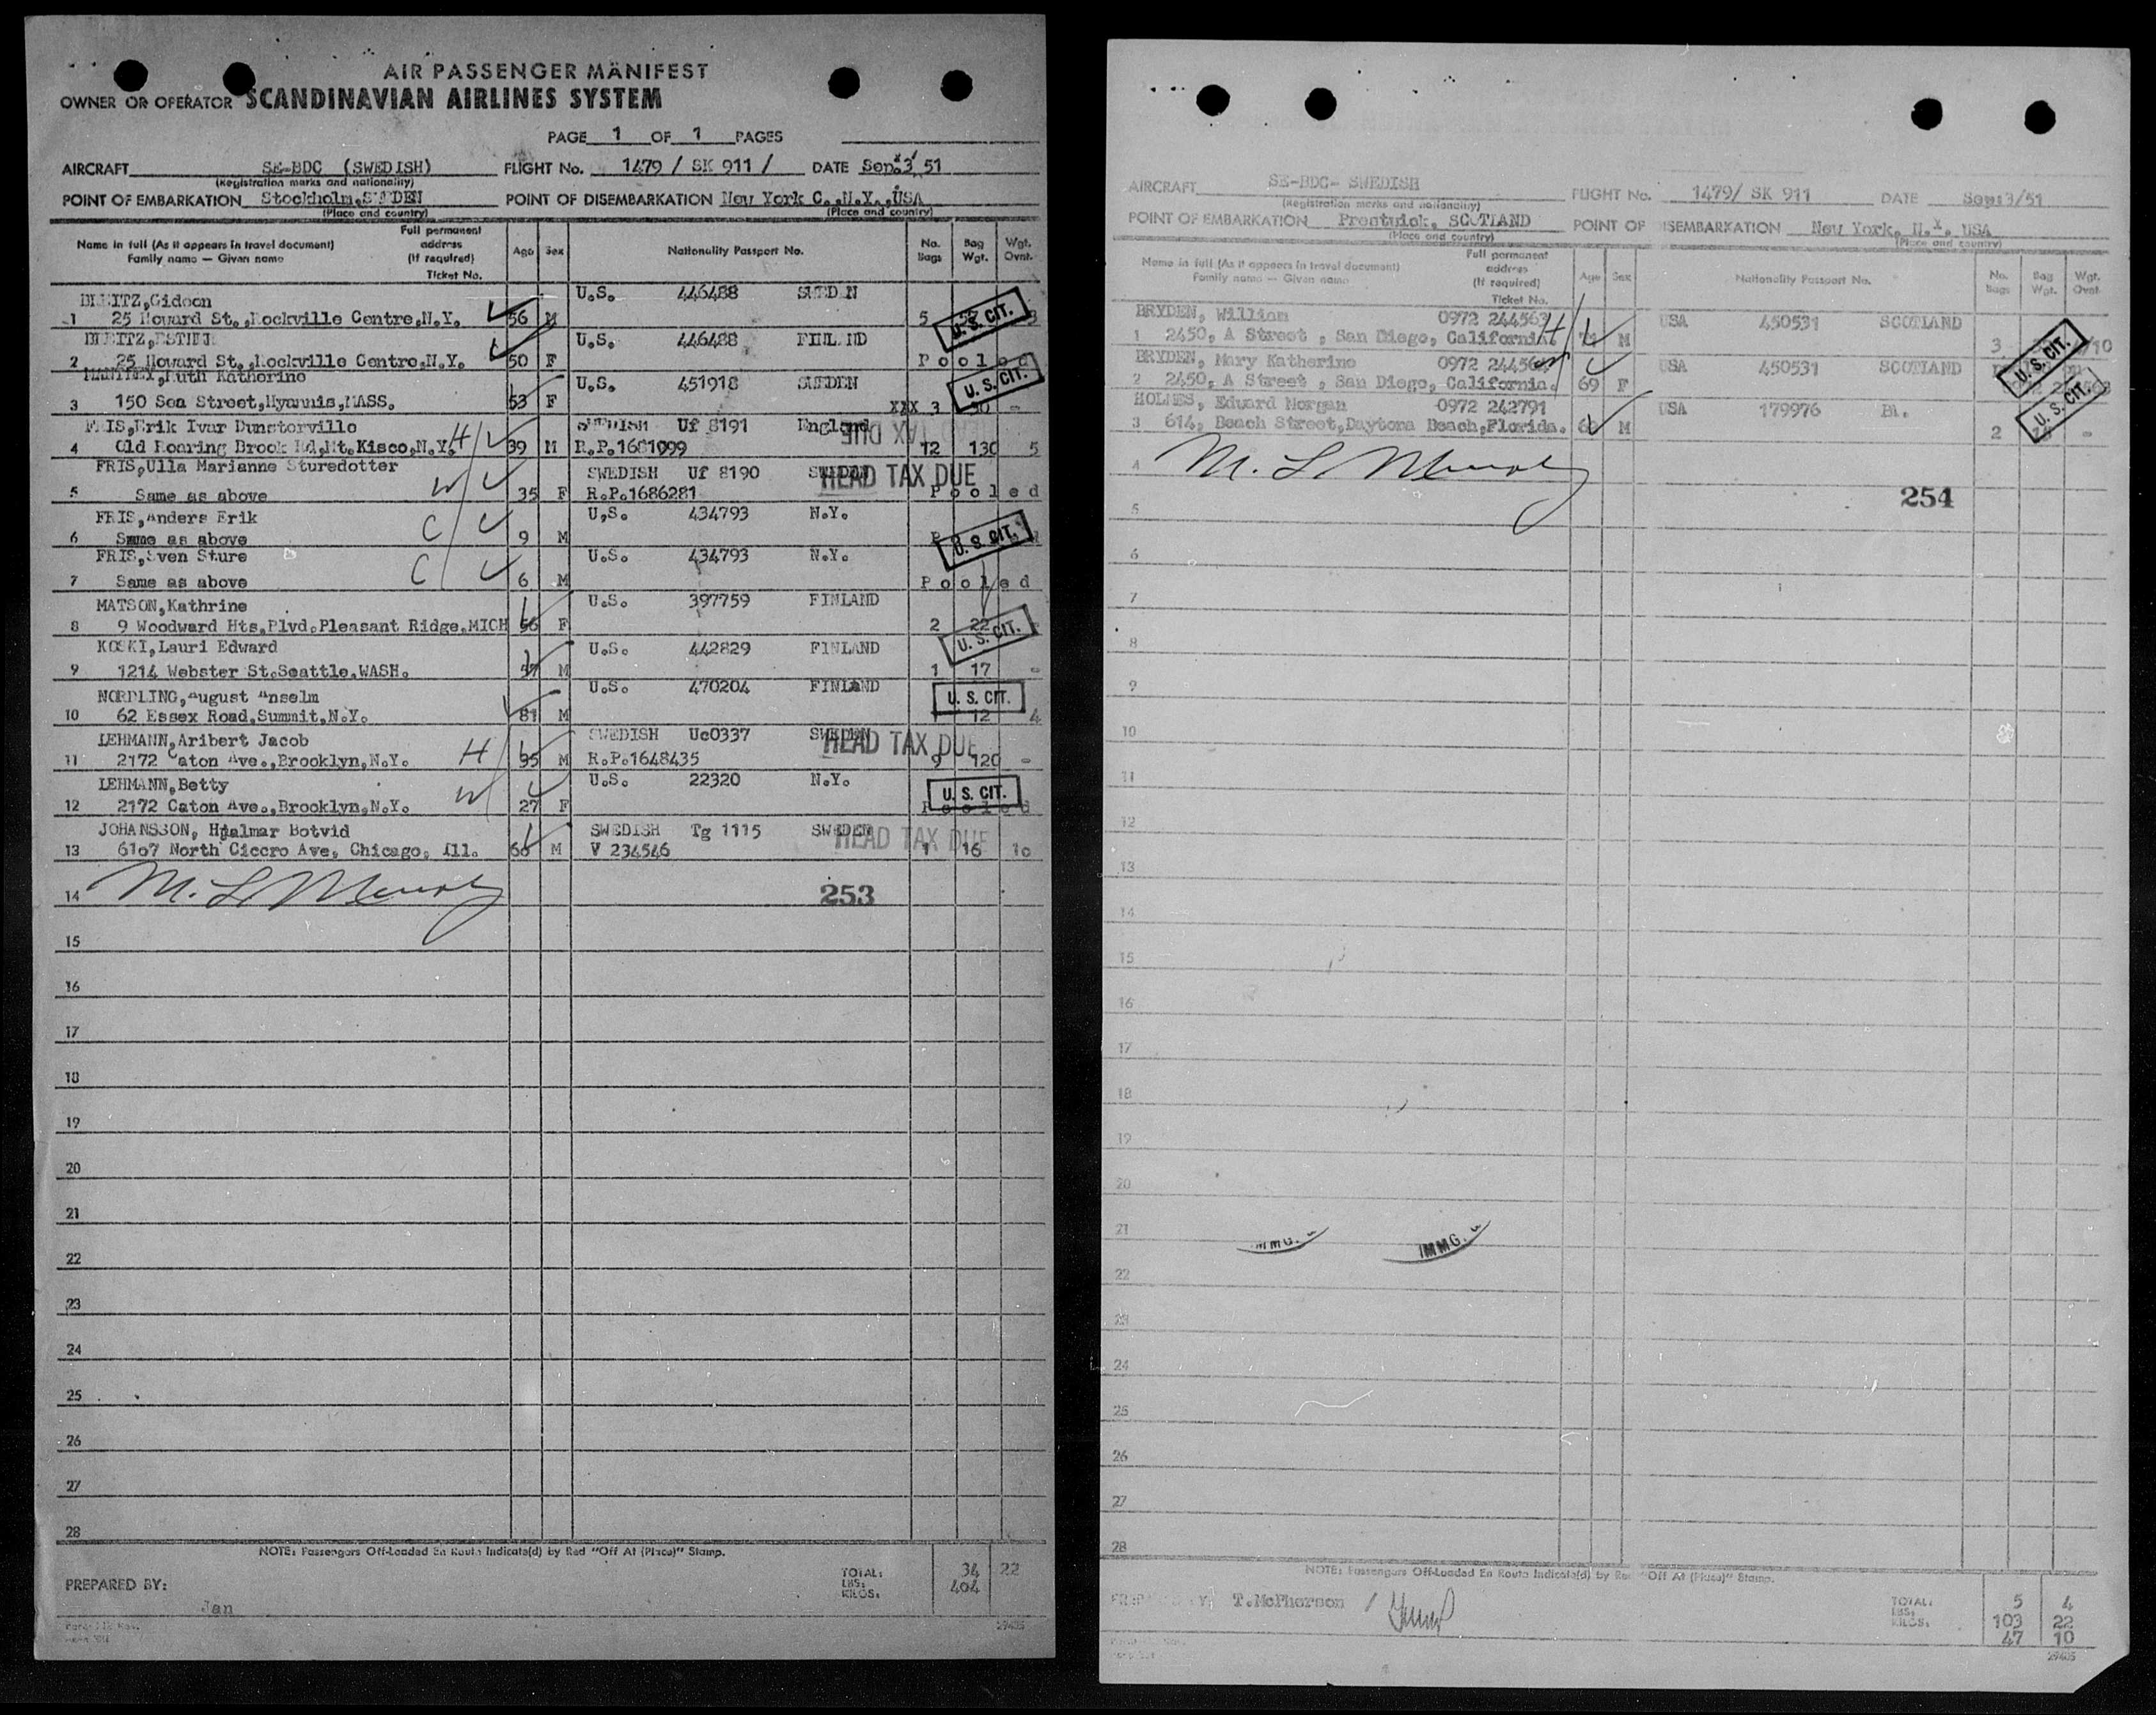 AIR PASSENGER MANIFEST
OWNER OR OPERATOR SCANDINAVIAN AIRLINES SYSTEM
PAGE 1 OF 1 PAGES
AIRCRAFT SE-BDC (SWEDISH) FLIGHT No. 1479 / SK 911 / DATE Sep. 3 51
(Registration marks and nationality)
POINT OF EMBARKATION Stockholm, SWEDEN POINT OF DISEMBARKATION New York C.,N.Y.,USA
(Place and country) (Place and country)
Name in full (As it appears in travel document) Family name — Given name Full permanent address (If required) Ticket No. Age Sex Nationality Passport No. No. Bags Bag Wgt. Wgt. Ovnt.
Gideon U.S. 446488 SWEDEN
1 25 Howard St.,Rockville Centre,N.Y. 56 M 5 U.S. CIT. 3
U.S. 446488 FINLAND
2 25 Howard St.,Rockville Centre,N.Y. 50 F Pooled
Ruth Katherine U.S. 451918 SWEDEN U.S. CIT.
3 150 Sea Street,Hyannis,MASS. 53 F XXX 3 -
FRIS,Erik Ivar Dunstorville SWEDISH Uf 8191 England
4 Old Roaring Brook Rd,Mt.Kisco,N.Y. H 39 M R.P.1681099 12 130 5
FRIS,Ulla Marianne Sturedotter SWEDISH Uf 8190 SWEDEN HEAD TAX DUE
5 Same as above W 35 F R.P.1686281 Pooled
FRIS,Anders Erik U.S. 434793 N.Y.
6 Same as above C 9 M U.S. CIT.
FRIS,Sven Sture U.S. 434793 N.Y.
7 Same as above C 6 M Pooled
MATSON,Kathrine U.S. 397759 FINLAND
8 9 Woodward Hts.Plvd.Pleasant Ridge.MICH 56 F 2 22 U.S. CIT.
KOSKI,Lauri Edward U.S. 442829 FINLAND
9 1214 Webster St.Seattle.WASH. 57 M 1 17 -
NORDLING,August Anselm U.S. 470204 FINLAND U.S. CIT.
10 62 Essex Road,Summit,N.Y. 81 M 1 12 4
LEHMANN,Aribert Jacob SWEDISH Uc0337 SWEDEN HEAD TAX DUE
11 2172 Caton Ave.,Brooklyn,N.Y. H 35 M R.P.1648435 9 120 -
LEHMANN,Betty U.S. 22320 N.Y. U.S. CIT.
12 2172 Caton Ave.,Brooklyn,N.Y. W 27 F Pooled
JOHANSSON, Hjalmar Botvid SWEDISH Tg 1115 SWEDEN HEAD TAX DUE
13 6107 North Cicero Ave, Chicago, Ill. 66 M V 234546 1 16 10
14 253
15
16
17
18
19
20
21
22
23
24
25
26
27
28
NOTE: Passengers Off-Loaded En Route Indicate(d) by Red "Off At (Place)" Stamp.
PREPARED BY: Jan
TOTAL: 34 22
LBS: 404
KILOS:
29405
AIRCRAFT SE-BDC- SWEDISH FLIGHT No. 1479/ SK 911 DATE Sep:3/51
(Registration marks and nationality)
POINT OF EMBARKATION Prestwick, SCOTLAND POINT OF DISEMBARKATION New York, N.Y. USA
(Place and country) (Place and country)
Name in full (As it appears in travel document) Family name — Given name Full permanent address (If required) Ticket No. Age Sex Nationality Passport No. No. Bags Bag Wgt. Wgt. Ovnt.
BRYDEN, William 0972 244563 USA 450531 SCOTLAND
1 2450, A Street , San Diego, California. H M 3 U.S. CIT. /10
BRYDEN, Mary Katherine USA 450531 SCOTLAND
2 2450, A Street , San Diego, California. W 69 F U.S. CIT.
HOLMES, Edward Morgan 0972 242791 USA 179976 Bl.
3 614, Beach Street,Daytona Beach,Florida. M 2 -
4
254
5
6
7
8
9
10
11
12
13
14
15
16
17
18
19
20
21 IMMG.
22
23
24
25
26
27
28
NOTE: Passengers Off-Loaded En Route Indicate(d) by Red "Off At (Place)" Stamp.
T.McPherson /
TOTAL: 5 4
LBS: 103 22
KILOS: 47 10
29405